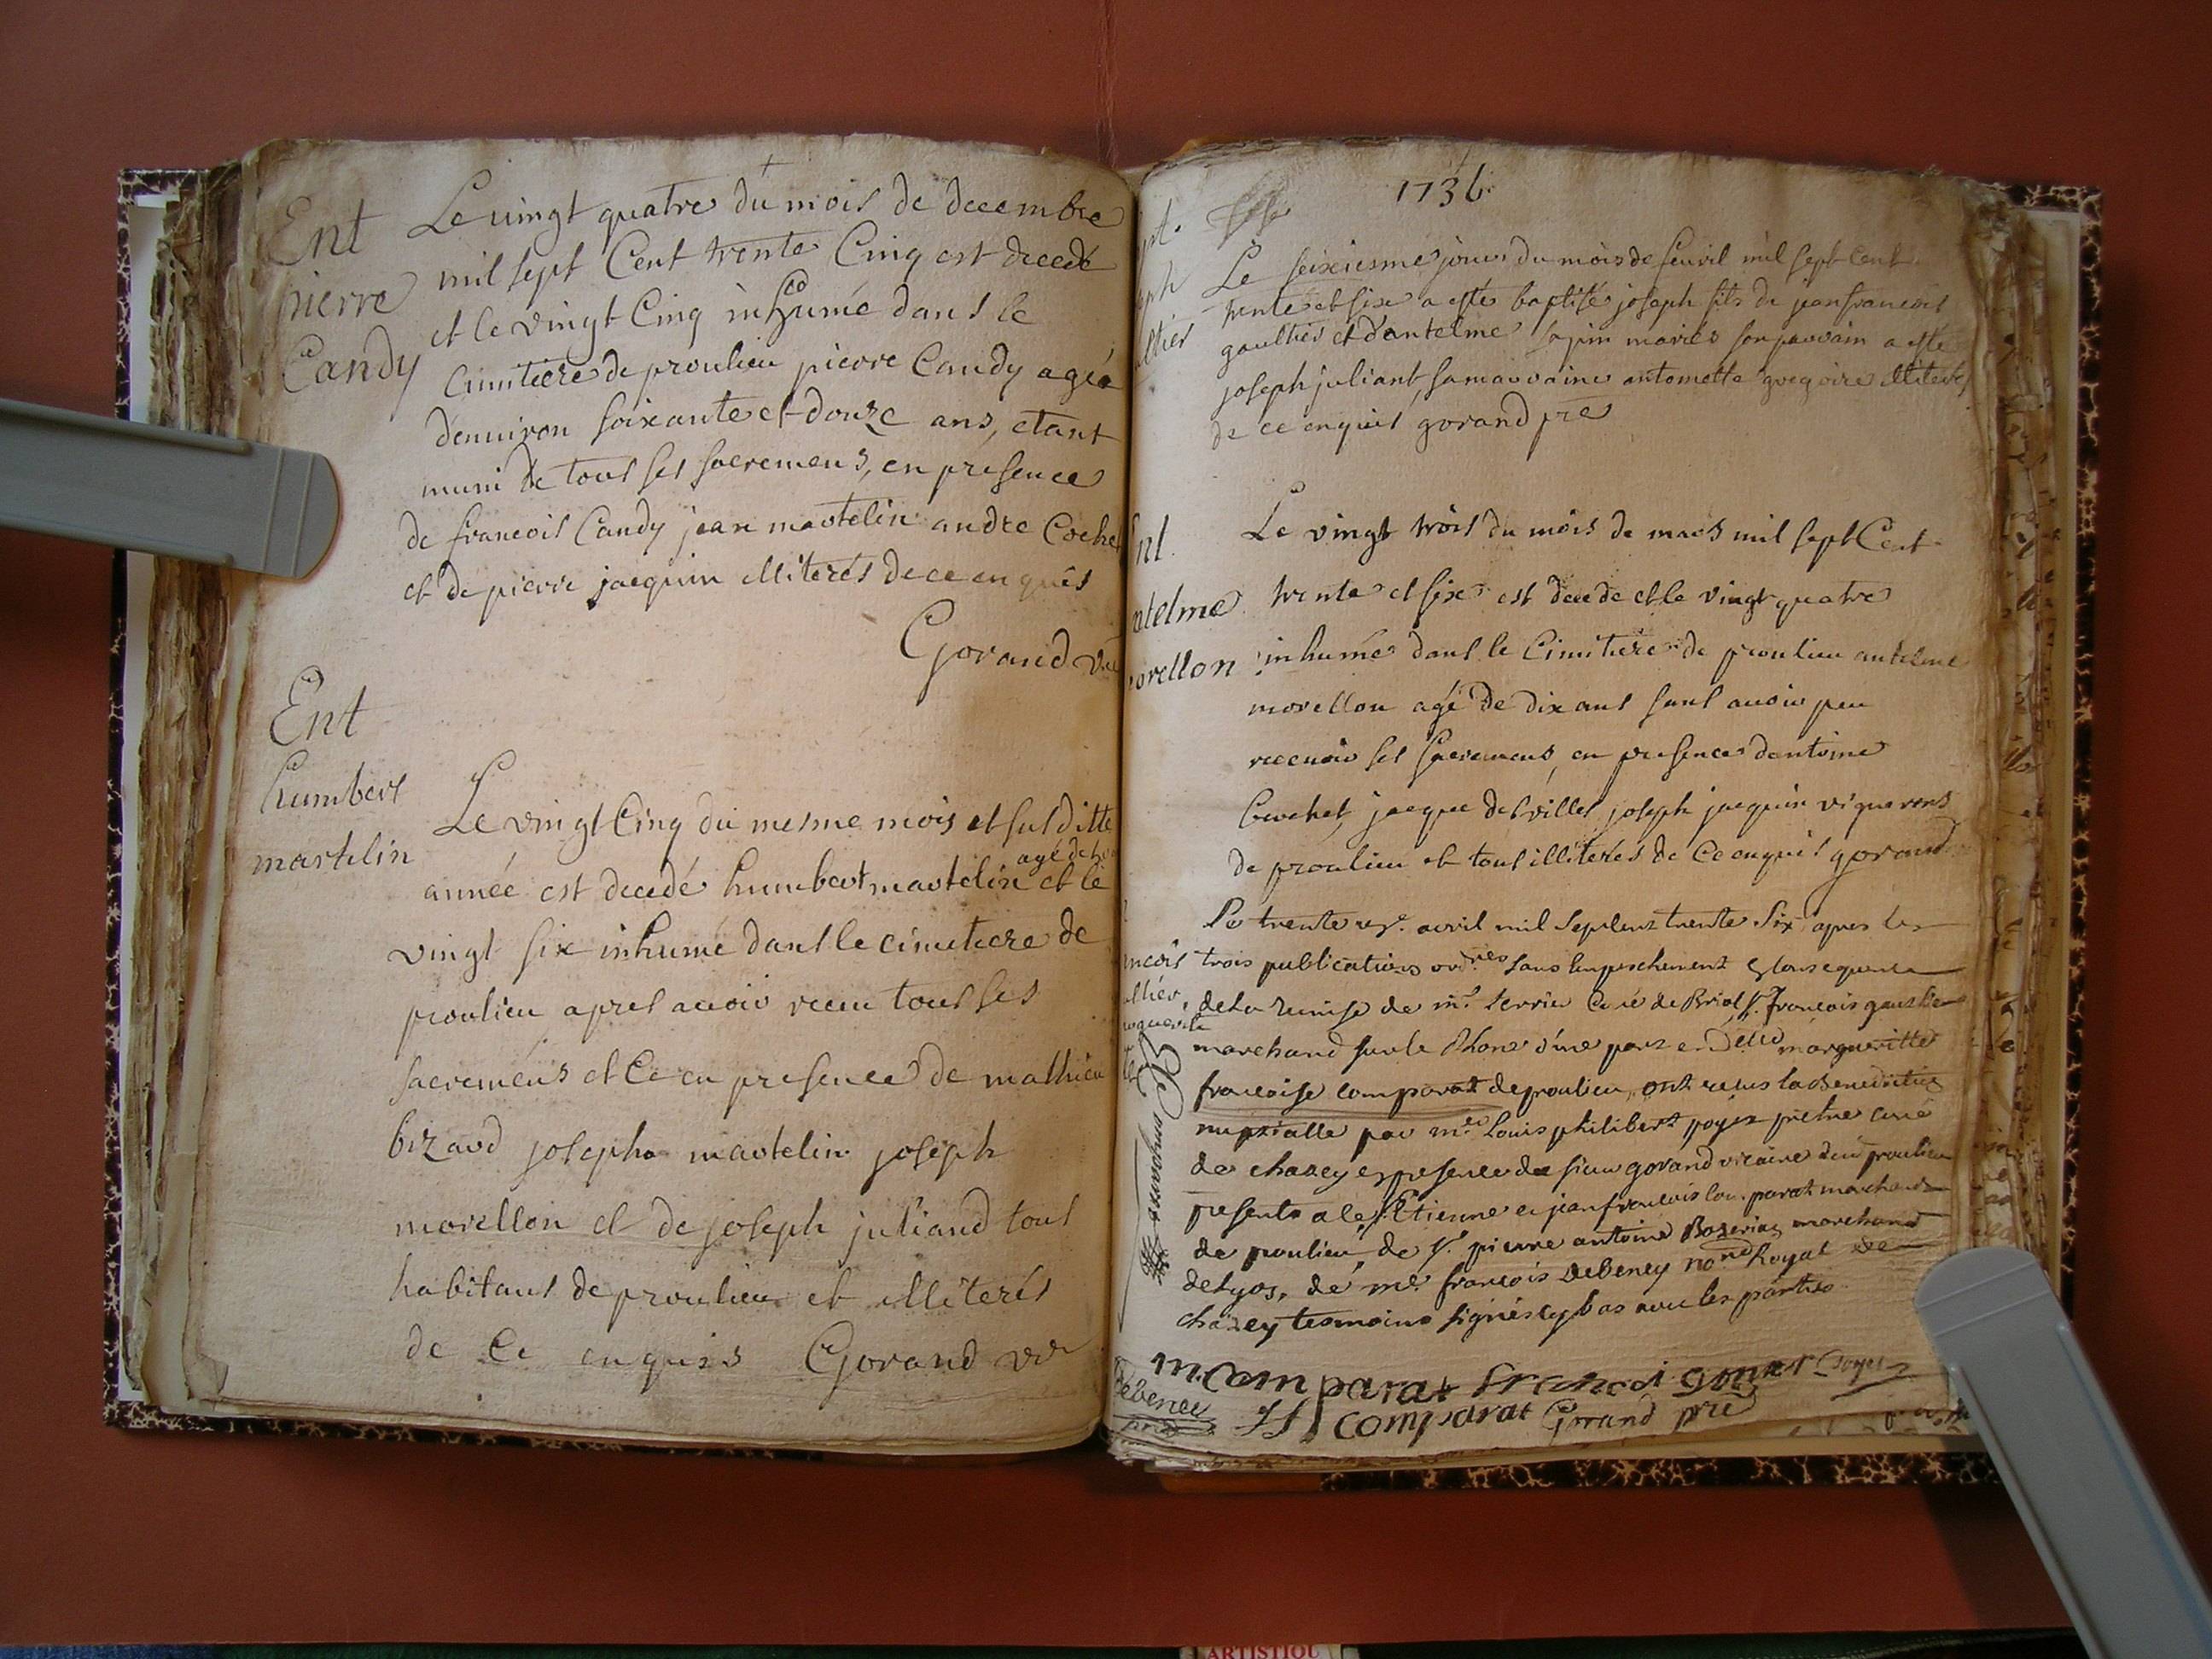 Ent
pierre
Candy
Le vingt quatre du mois de decembre
mil sept Cent trente Cinq est decedé
et le vingt Cinq inhumé dans le
Cimitiere de proulieu pierre Candy agéé
denuiron soixante et douze ans, etant
muni de tous ses sacremens, en presence
de francois Candy jean martelin andre Coche
et de pierre jacquin illiterés de ce enquis
Gorand
Ent
humbert
martelin
Le vingt Cinq du mesme mois et susditte
agé de
année est decedé humbert martelin et le
vingt six inhumé dans le cimetiere de
proulieu apres auoir receu tous ses
sacremens et Ce en presence de mathieu
bizard joseph martelin joseph
morellon et de joseph juliand tous
habitans de proulieu et illiterés
de Ce enquis Gorand vic
1736
pt.
eph
ltier
Le seixiesme jour du mois de feuvil mil sept Cent
trente et six a esté baptisé joseph fils de jean francois
gaultier et d'antelme sapin mariés son parrain a esté
joseph juliant, sa marraine antoinette gregoire illiterés
de ce enquis gorand pre
Ent
ntelme
orellon
Le vingt trois du mois de mars mil sept Cent
trente et six est decede et le vingt quatre
inhumé dans le Cimitiere de proulieu antelme
morellon agé de dix ans sans auoir peu
receuoir ses sacremens, en presence dantoine
Cuchet, jacque desvilles, joseph jacquin vignerons
de proulieu et tous illiterés de Ce enquis gorand
ncois
ltier
Comparat
Le trente avril mil sept cent trente Six apres les
trois publications ordres sans empeschement et consequence
de la remise de mr. perrin Curé de Briol, sr. francois gaultier
marchand sur le Rhone d'une part et delle margueritte
francoise comparat de proulieu, ont receus la Benediction
nuptialle par mre Louis philibert poyet prêtre curé
de chazey en presence de sieur gorand vicaire dud proulieu
presents a ce sr. Etienne et jean francois comparat marchands
de proulieu, de sr. pierre antoine Bozeriaz marchand
de Lyos, de me. francois Debeney nore Royal de
chazey tesmoins signés cy bas avec les parties
m. Comparat francoi gautier poyet
debeney
J f comparat Gorand pre